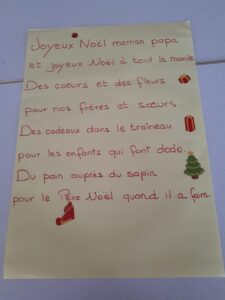 Joyeux Noël maman papa
et joyeux Noël à tout le monde
Des cœurs et des fleurs
pour nos frères et sœurs.
Des cadeaux dans le traîneau
pour les enfants qui font dodo.
Du pain auprès du sapin
pour le Père Noël quand il a faim.